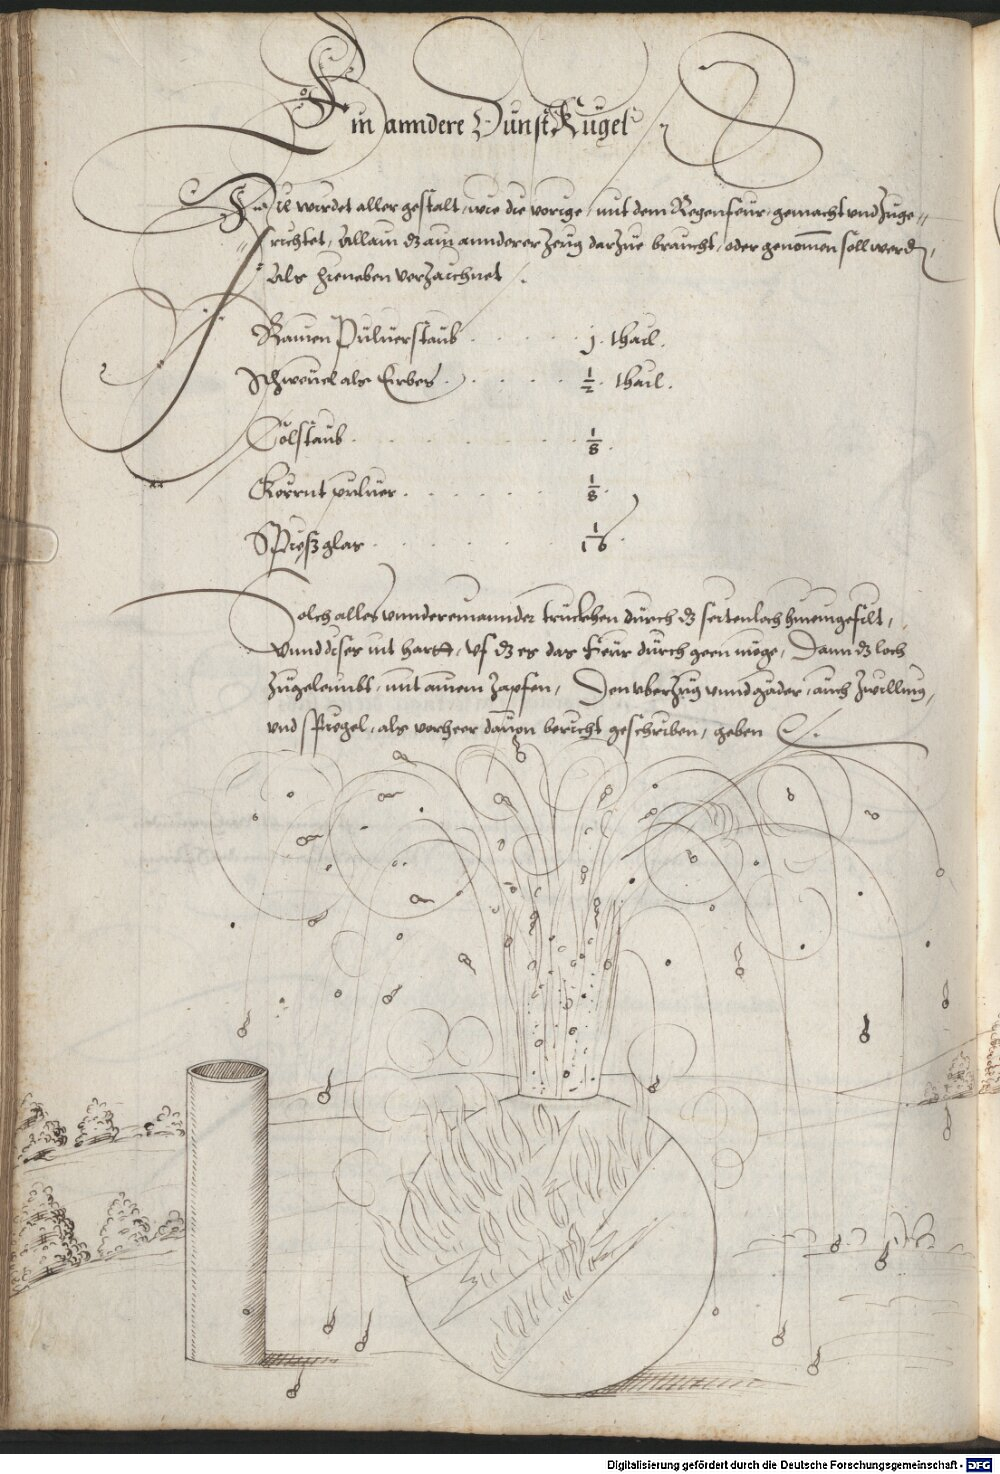 Ein anndere Dunst Kugel
Die wirdet aller gestalt, wie die vorige, mit dem Regenfeur, gemacht vnd zuge¬
richtet, Allain dz ain annderer Zeug darzue braucht, oder genomen soll werdn,
Als hieneben verzaichnet.
Ramen Puluerstaub . . . . . j. thail.
Schweuel als Erbes . . . . . 1/2. thail.
Kolstaub . . . . . 1/8.
Körnt puluer . . . . . 1/8.
Spießglas . . . . . 1/16.
Solch alles vnndereinannder truckhen durch dz seitenloch hineingefilt,
vnnd dises nit hartt, vf dz es das Feur durch geen möge, Dann dz loch
zugeleimbt, mit ainem Zapfen, Den vberzug vnnd gäder, auch Zwilling,
vnd Spiegel, als vorheer dauon bericht geschriben, geben.
Digitalisierung gefördert durch die Deutsche Forschungsgemeinschaft - DFG